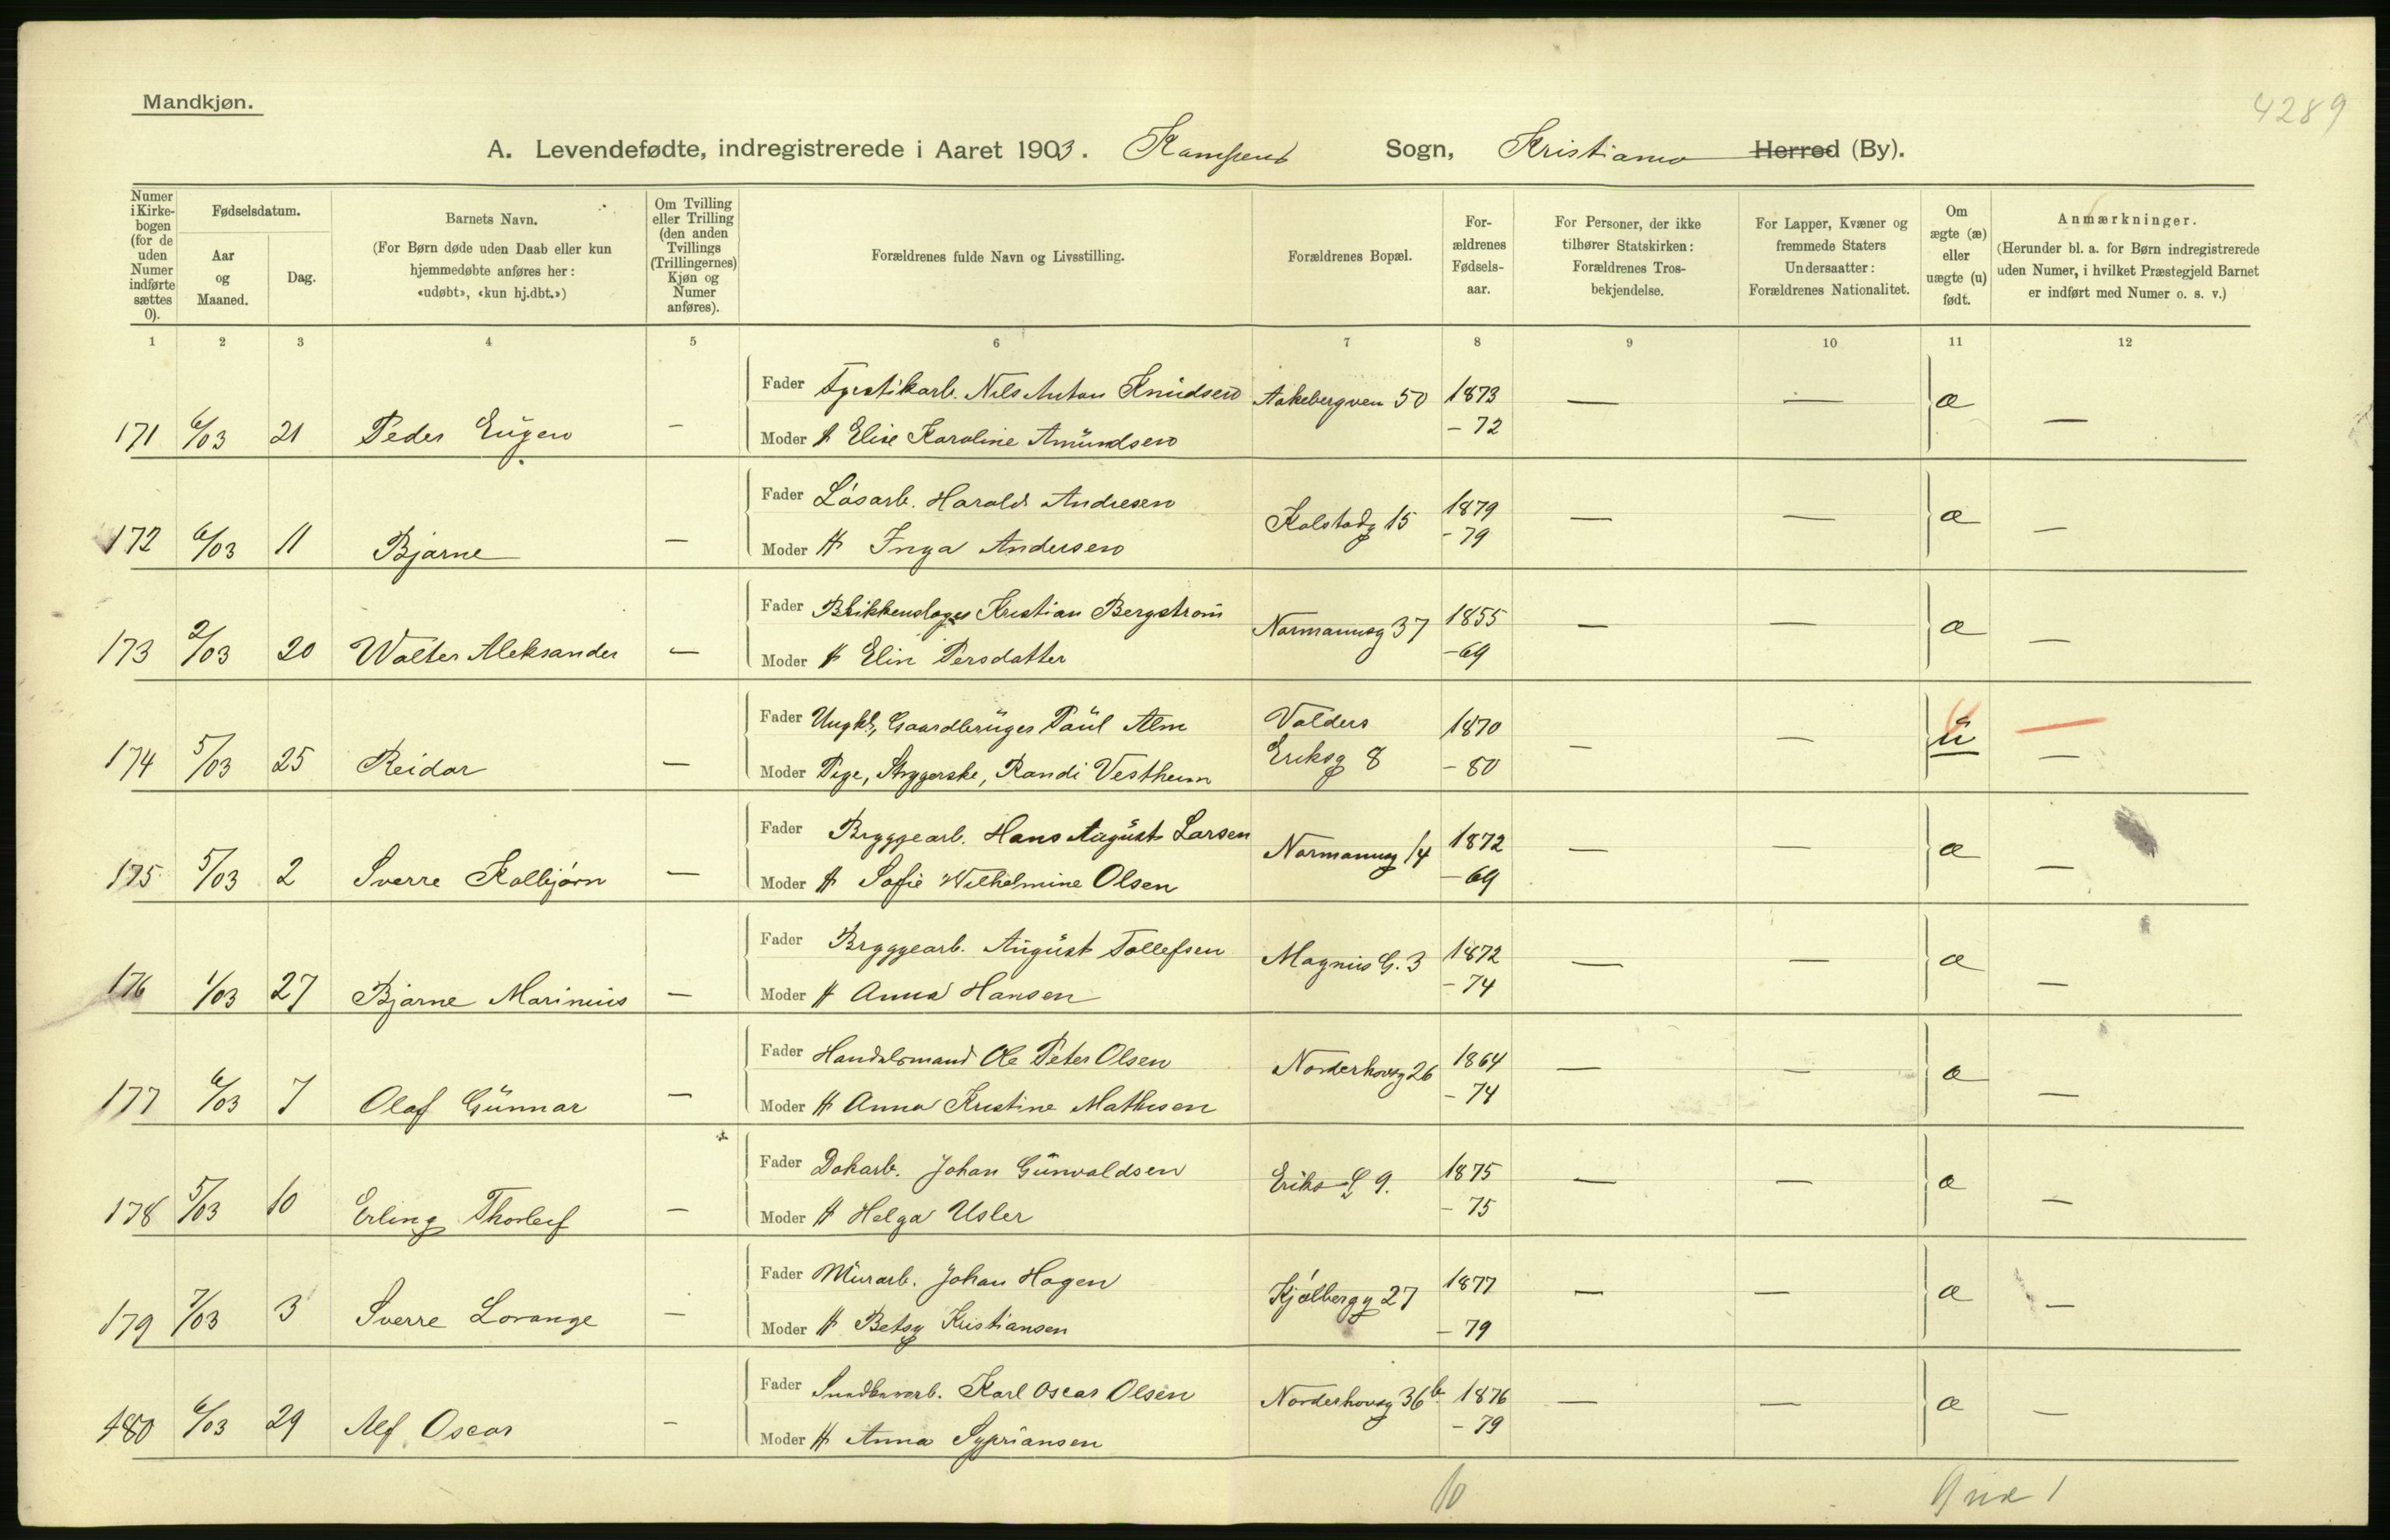 Mandkjøn.
4289
A. Levendefødte, indregistrerede i Aaret 1903. Kampens Sogn, Kristiania Herred (By).
Numer i Kirkebogen (for de uden Numer indførte sættes 0).
Fødselsdatum.
Aar og Maaned.
Dag.
Barnets Navn.
(For Børn døde uden Daab eller kun hjemmedøbte anføres her: «udøbt», «kun hj.dbt.»)
Om Tvilling eller Trilling (den anden Tvillings (Trillingernes) Kjøn og Numer anføres).
Forældrenes fulde Navn og Livsstilling.
Forældrenes Bopæl.
Forældrenes Fødselsaar.
For Personer, der ikke tilhører Statskirken: Forældrenes Trosbekjendelse.
For Lapper, Kvæner og fremmede Staters Undersaatter: Forældrenes Nationalitet.
Om ægte (æ) eller uægte (u) født.
Anmærkninger.
(Herunder bl. a. for Børn indregistrerede uden Numer, i hvilket Præstegjeld Barnet er indført med Numer o. s. v.)
1 2 3 4 5 6 7 8 9 10 11 12
Fader Fyrstikarb. Nils Anton Knudsen Aakebergven 50 1873 — — æ —
171 6/03 21 Peder Eugen — Moder H Elise Karoline Amundsen - 72
Fader Løsarb. Harald Andresen Kolstadg 15 1879 — — æ —
172 6/03 11 Bjarne — Moder H Inga Andersen - 79
Fader Blikkenslager Kristian Bergstrøm Normannsg 37 1855 — — æ —
173 2/03 20 Walter Aleksander — Moder H Elin Persdatter - 69
Fader Ungkl., Gaardbruger Paul Alm Valders 1870 — — u —
174 5/03 25 Reidar — Moder Pige, Strygerske, Randi Vestheim Eriksg 8 - 80
Fader Bryggearb. Hans August Larsen Normannsg 14 1872 — — æ —
175 5/03 2 Sverre Kolbjørn — Moder H Sofie Wilhelmine Olsen - 69
Fader Bryggearb. August Tollefsen Magnus G. 3 1872 — — æ —
176 1/03 27 Bjarne Marinius — Moder H Anna Hansen - 74
Fader Handelsmand Ole Peter Olsen Norderhovsg 26 1864 — — æ —
177 6/03 7 Olaf Gunnar — Moder H Anna Kristine Mathisen - 74
Fader Dokarb. Johan Gunvaldsen Eriks G 9. 1875 — — æ —
178 5/03 10 Erling Thorleif — Moder H Helga Usler - 75
Fader Murarb. Johan Hagen Kjølbergg 27 1877 — — æ —
179 7/03 3 Sverre Lorange — Moder H Betsy Kristiansen - 79
Fader Karl Oscar Olsen Norderhovsg 36 b. 1876 — — æ —
180 6/03 29 Alf Oscar — Moder H Anna Sypriansen - 79
10